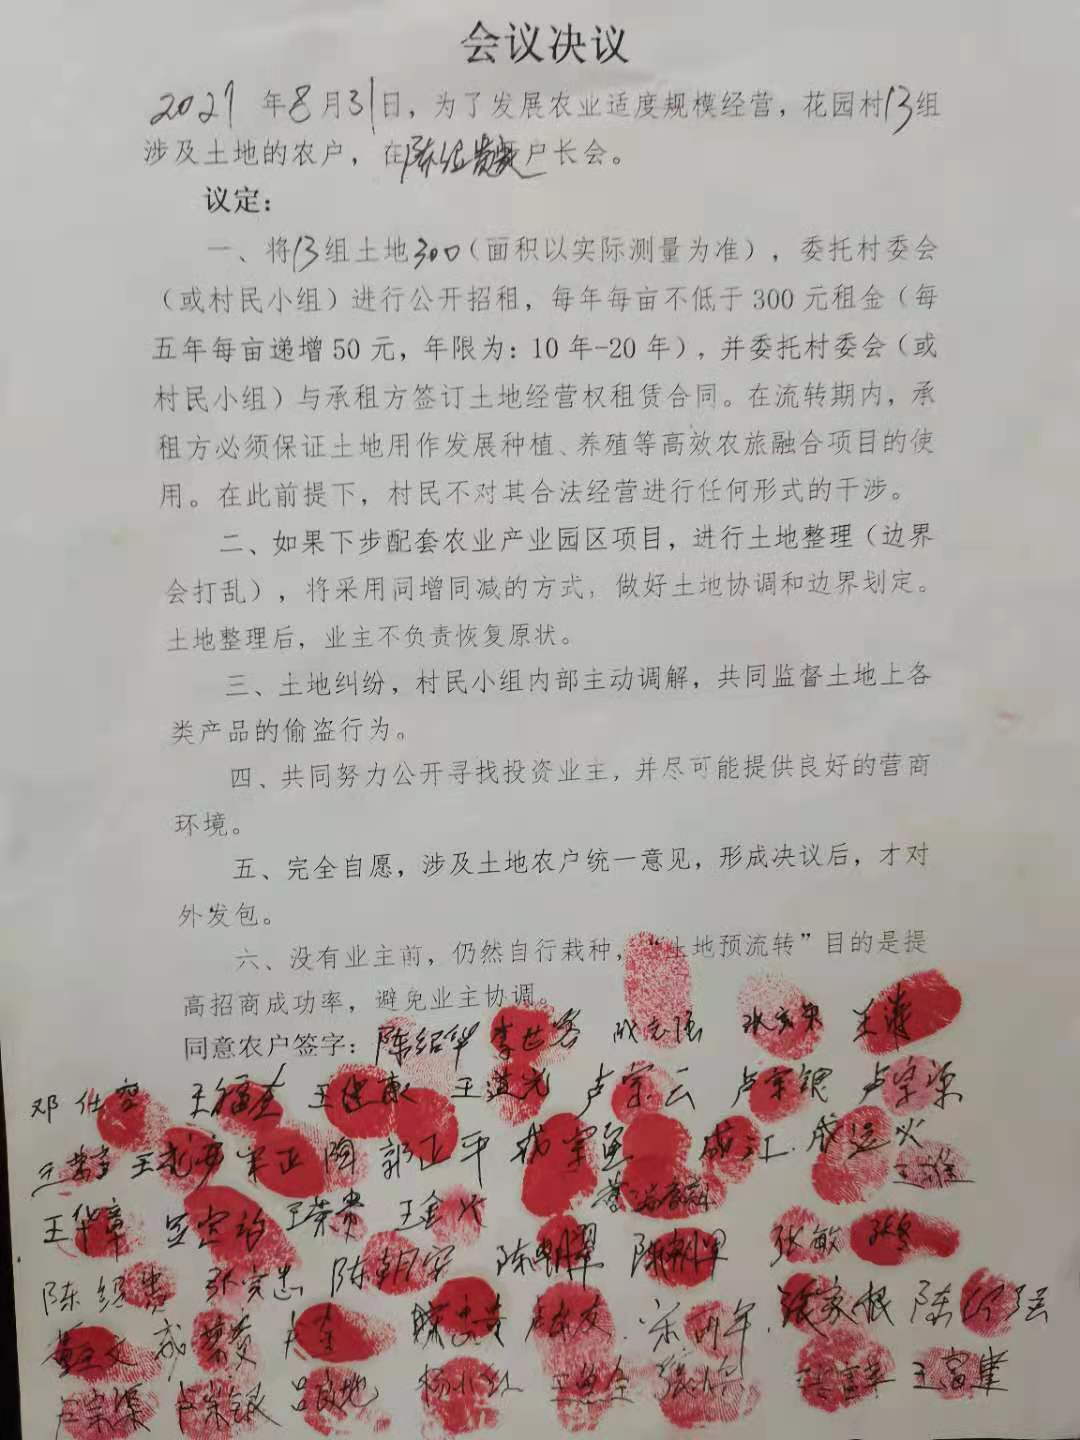 会议决议
2021年8月31日，为了发展农业适度规模经营，花园村13组
涉及土地的农户，在陈绍贵家开户长会。
议定：
一、将13组土地300（面积以实际测量为准），委托村委会
（或村民小组）进行公开招租，每年每亩不低于300元租金（每
五年每亩递增50元，年限为：10年-20年），并委托村委会（或
村民小组）与承租方签订土地经营权租赁合同。在流转期内，承
租方必须保证土地用作发展种植、养殖等高效农旅融合项目的使
用。在此前提下，村民不对其合法经营进行任何形式的干涉。
二、如果下步配套农业产业园区项目，进行土地整理（边界
会打乱），将采用同增同减的方式，做好土地协调和边界划定。
土地整理后，业主不负责恢复原状。
三、土地纠纷，村民小组内部主动调解，共同监督土地上各
类产品的偷盗行为。
四、共同努力公开寻找投资业主，并尽可能提供良好的营商
环境。
五、完全自愿，涉及土地农户统一意见，形成决议后，才对
外发包。
六、没有业主前，仍然自行栽种，“土地预流转”目的是提
高招商成功率，避免业主协调。
同意农户签字：陈绍华 李世容 成志强 王涛
王福奎 王健康 王道元 卢宗云 卢宗银 卢宗源
王龙安 宋正陶 郭正平 成宗鱼 成江 成运火
王华章 王荣贵 王金火 王淮
陈绍贵 张宗忠 陈朝军 陈朝翠 陈朝军 张敏 张冬
成荣英 卢奎 宋昕年 张家根 陈绍强
卢宗渠 卢宗银 吕良地 杨小红 王富崔